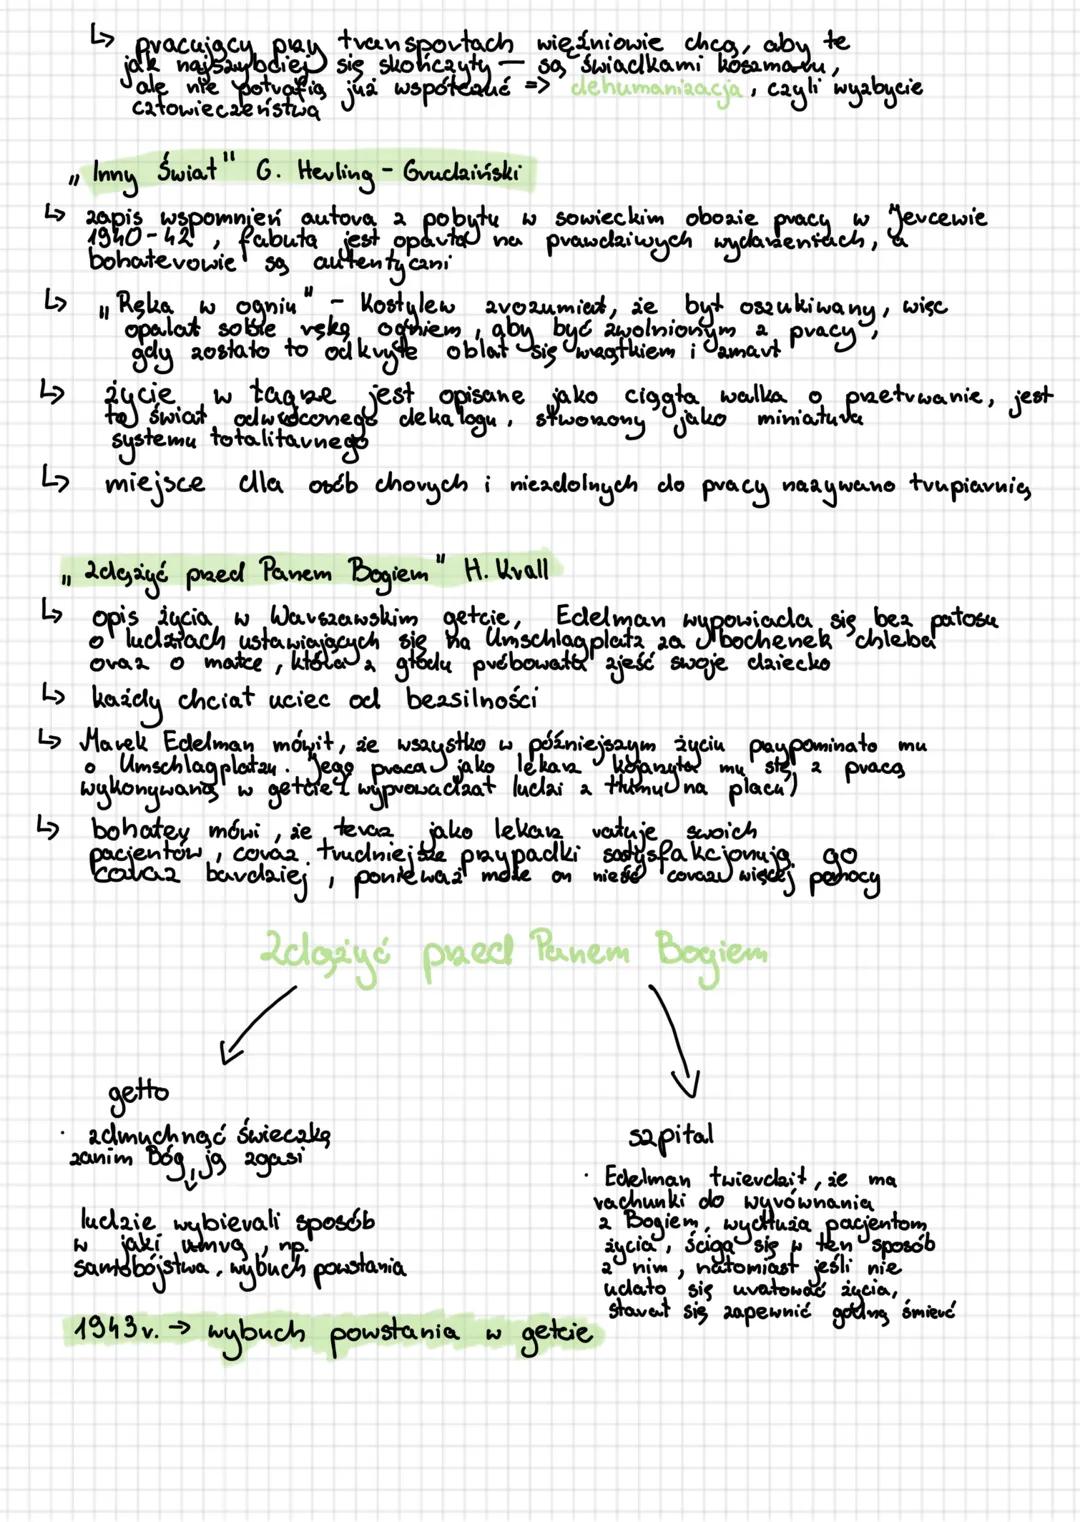 ↳ pracujący przy transportach więźniowie chcą, aby te
jak najszybciej się skończyły – są świadkami koszmaru,
ale nie potrafią już współczuć => dehumanizacja, czyli wyzbycie
człowieczeństwa
„Inny Świat" G. Herling - Grudziński
↳ zapis wspomnień autora z pobytu w sowieckim obozie pracy w Jercewie
1940-42, fabuła jest oparta na prawdziwych wydarzeniach, a
bohaterowie są autentyczni
↳ „Ręka w ogniu" - Kostylew zrozumiał, że był oszukiwany, więc
opalał sobie rękę ogniem, aby być zwolnionym z pracy,
gdy zostało to odkryte oblał się wrzątkiem i zmarł
↳ życie w łagrze jest opisane jako ciągła walka o przetrwanie, jest
to świat odwróconego dekalogu, stworzony jako miniatura
systemu totalitarnego
↳ miejsce dla osób chorych i niezdolnych do pracy nazywano trupiarnią
„Zdążyć przed Panem Bogiem" H. Krall
↳ opis życia w Warszawskim getcie, Edelman wypowiada się bez patosu
o ludziach ustawiających się na Umschlagplatz za bochenek chleba
oraz o matce, która z głodu próbowała zjeść swoje dziecko
↳ każdy chciał uciec od bezsilności
↳ Marek Edelman mówił, że wszystko w późniejszym życiu przypominało mu
o Umschlagplatzu. Jego praca jako lekarz kojarzyła mu się z pracą
wykonywaną w getcie ( wyprowadzał ludzi z tłumu na placu)
↳ bohater mówi, że teraz jako lekarz ratuje swoich
pacjentów, coraz trudniejsze przypadki satysfakcjonują go
coraz bardziej, ponieważ może on nieść coraz więcej pomocy
Zdążyć przed Panem Bogiem
getto
· zdmuchnąć świeczkę
zanim Bóg ją zgasi
↓
ludzie wybierali sposób
w jaki umrą, np.
samobójstwa, wybuch powstania
1943r. → wybuch powstania w getcie
szpital
· Edelman twierdził, że ma
rachunki do wyrównania
z Bogiem, wydłuża pacjentom
życia, ściga się w ten sposób
z nim, natomiast jeśli nie
udało się uratować życia,
starał się zapewnić godną śmierć